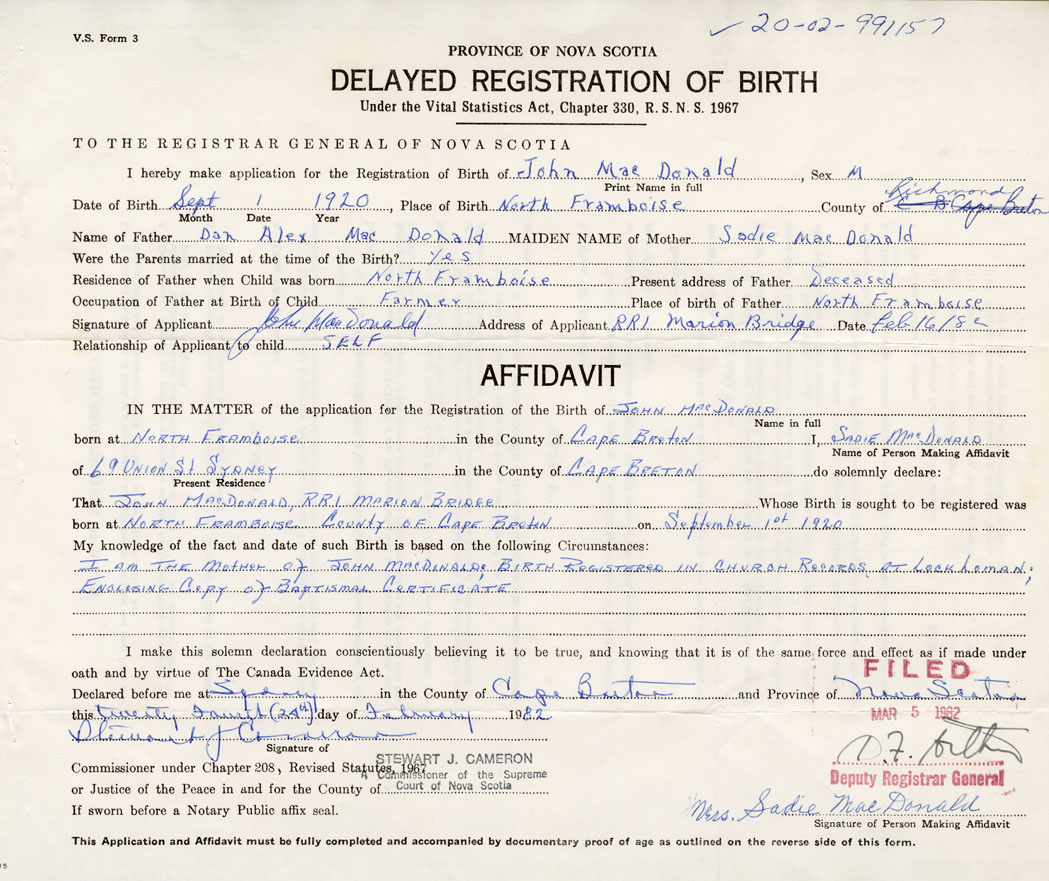 V.S. Form 3
20-02-991157
PROVINCE OF NOVA SCOTIA
DELAYED REGISTRATION OF BIRTH
Under the Vital Statistics Act, Chapter 330, R. S. N. S. 1967
TO THE REGISTRAR GENERAL OF NOVA SCOTIA
I hereby make application for the Registration of Birth of John Mac Donald, Sex M
Print Name in full
Richmond
Date of Birth Sept 1 1920, Place of Birth North Framboise County of C B Cape Breton
Month Date Year
Name of Father Dan Alex Mac Donald MAIDEN NAME of Mother Sadie Mac Donald
Were the Parents married at the time of the Birth? Yes
Residence of Father when Child was born North Framboise Present address of Father Deceased
Occupation of Father at Birth of Child Farmer Place of birth of Father North Framboise
Signature of Applicant John MacDonald Address of Applicant RR1 Marion Bridge Date Feb 16/82
Relationship of Applicant to child SELF
AFFIDAVIT
IN THE MATTER of the application for the Registration of the Birth of JOHN MACDONALD
Name in full
born at NORTH FRAMBOISE in the County of CAPE BRETON I, SADIE MACDONALD
Name of Person Making Affidavit
of 69 UNION St SYDNEY in the County of CAPE BRETON do solemnly declare:
Present Residence
That JOHN MACDONALD, RR1 MARION BRIDGE Whose Birth is sought to be registered was
born at NORTH FRAMBOISE COUNTY OF CAPE BRETON on September 1st 1920
My knowledge of the fact and date of such Birth is based on the following Circumstances:
I AM THE MOTHER of JOHN MACDONALD; BIRTH REGISTERED IN CHURCH RECORDS AT LOCH LOMAN;
ENCLOSING COPY of BAPTISMAL CERTIFICATE
I make this solemn declaration conscientiously believing it to be true, and knowing that it is of the same force and effect as if made under
oath and by virtue of The Canada Evidence Act.
FILED
Declared before me at Sydney in the County of Cape Breton and Province of Nova Scotia
this twenty fourth (24th) day of February 1982
MAR 5 1982
Signature of
STEWART J. CAMERON
Commissioner under Chapter 208, Revised Statutes, 1967
A Commissioner of the Supreme
Deputy Registrar General
or Justice of the Peace in and for the County of
Court of Nova Scotia
If sworn before a Notary Public affix seal.
Mrs. Sadie MacDonald
Signature of Person Making Affidavit
This Application and Affidavit must be fully completed and accompanied by documentary proof of age as outlined on the reverse side of this form.